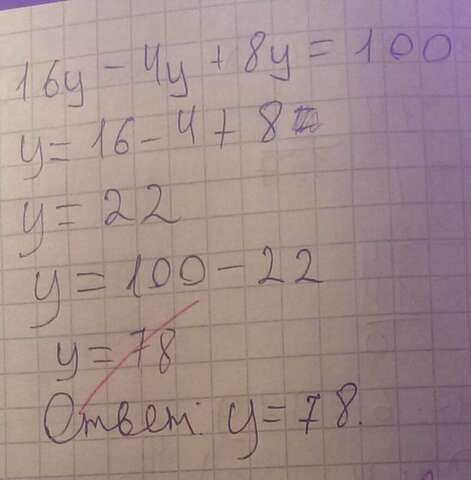 16y - 4y + 8y = 100
y = 16 - 4 + 8
y = 22
y = 100 - 22
y = 78
Ответ: y = 78.